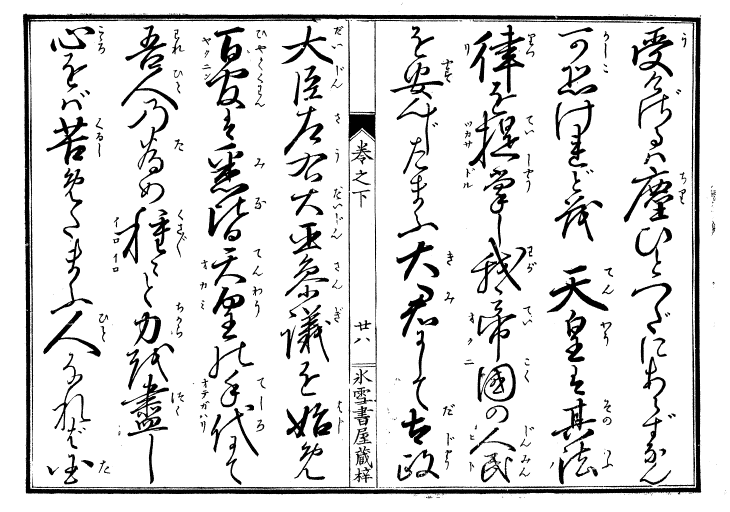 受けざるハ塵ひとつだにあらずなん
可恐けれども 天皇は其法
律を提掌し我帝國の人民
を安んじたまふ大君にして太政
巻之下 廿八 氷雪書屋蔵梓
大臣左右大臣参議を始め
百官は悉皆天皇の手代にて
吾人の為め種々と力を盡し
心をバ苦めたまふ人なれバ